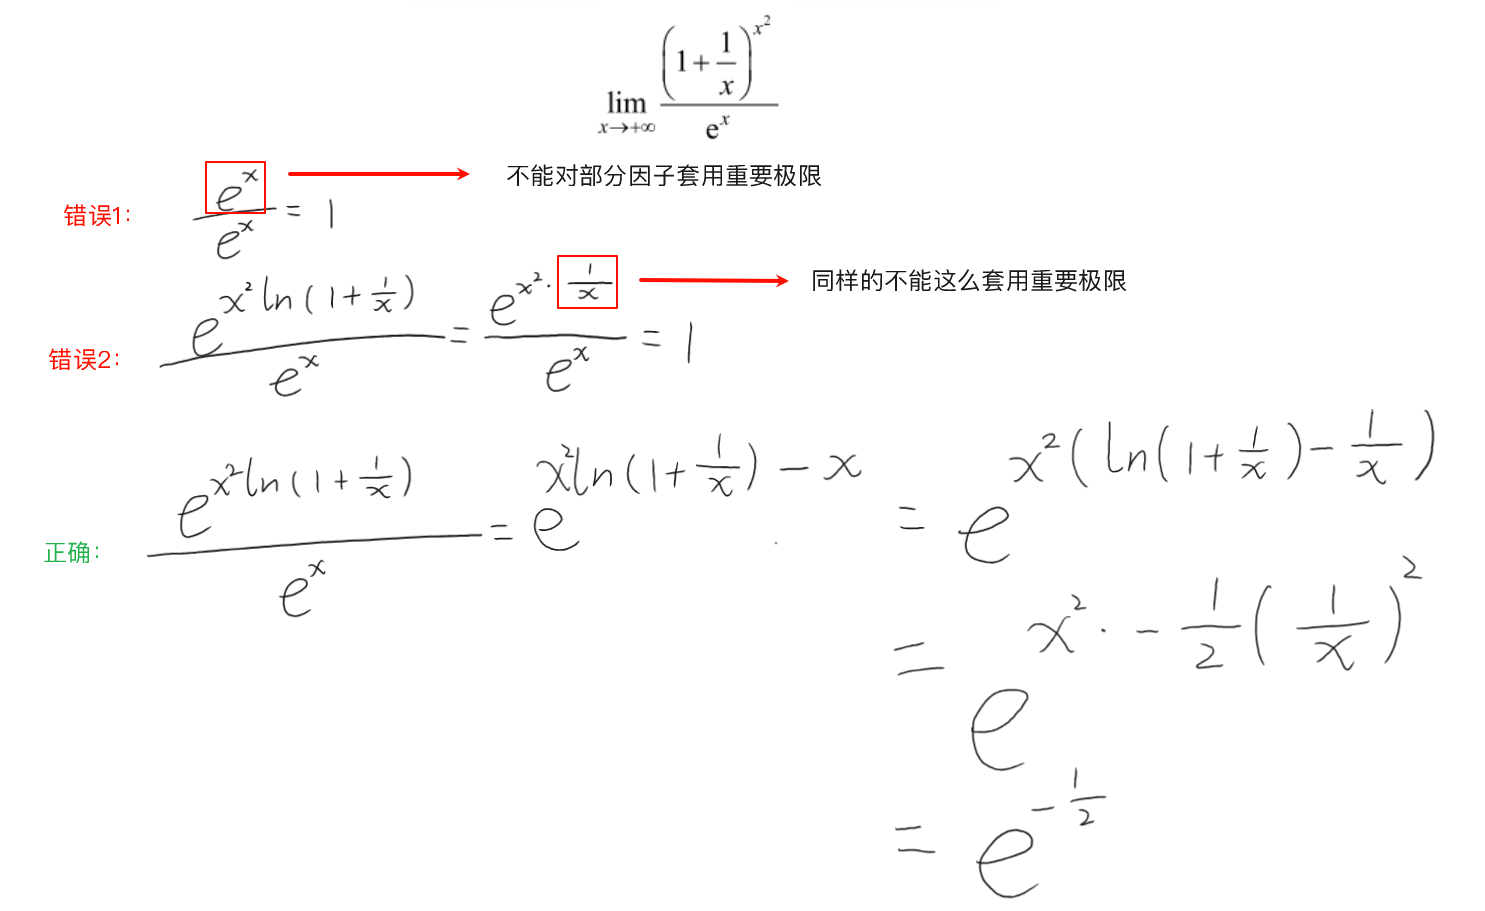 lim x→+∞ (1+1/x)^x² / e^x
错误1: e^x / e^x = 1 不能对部分因子套用重要极限
错误2: e^x²ln(1+1/x) / e^x = e^x²·1/x / e^x = 1 同样的不能这么套用重要极限
正确: e^x²ln(1+1/x) / e^x = e^x²ln(1+1/x)-x = e^x²(ln(1+1/x)-1/x)
= e^x²·-1/2(1/x)²
= e^-1/2